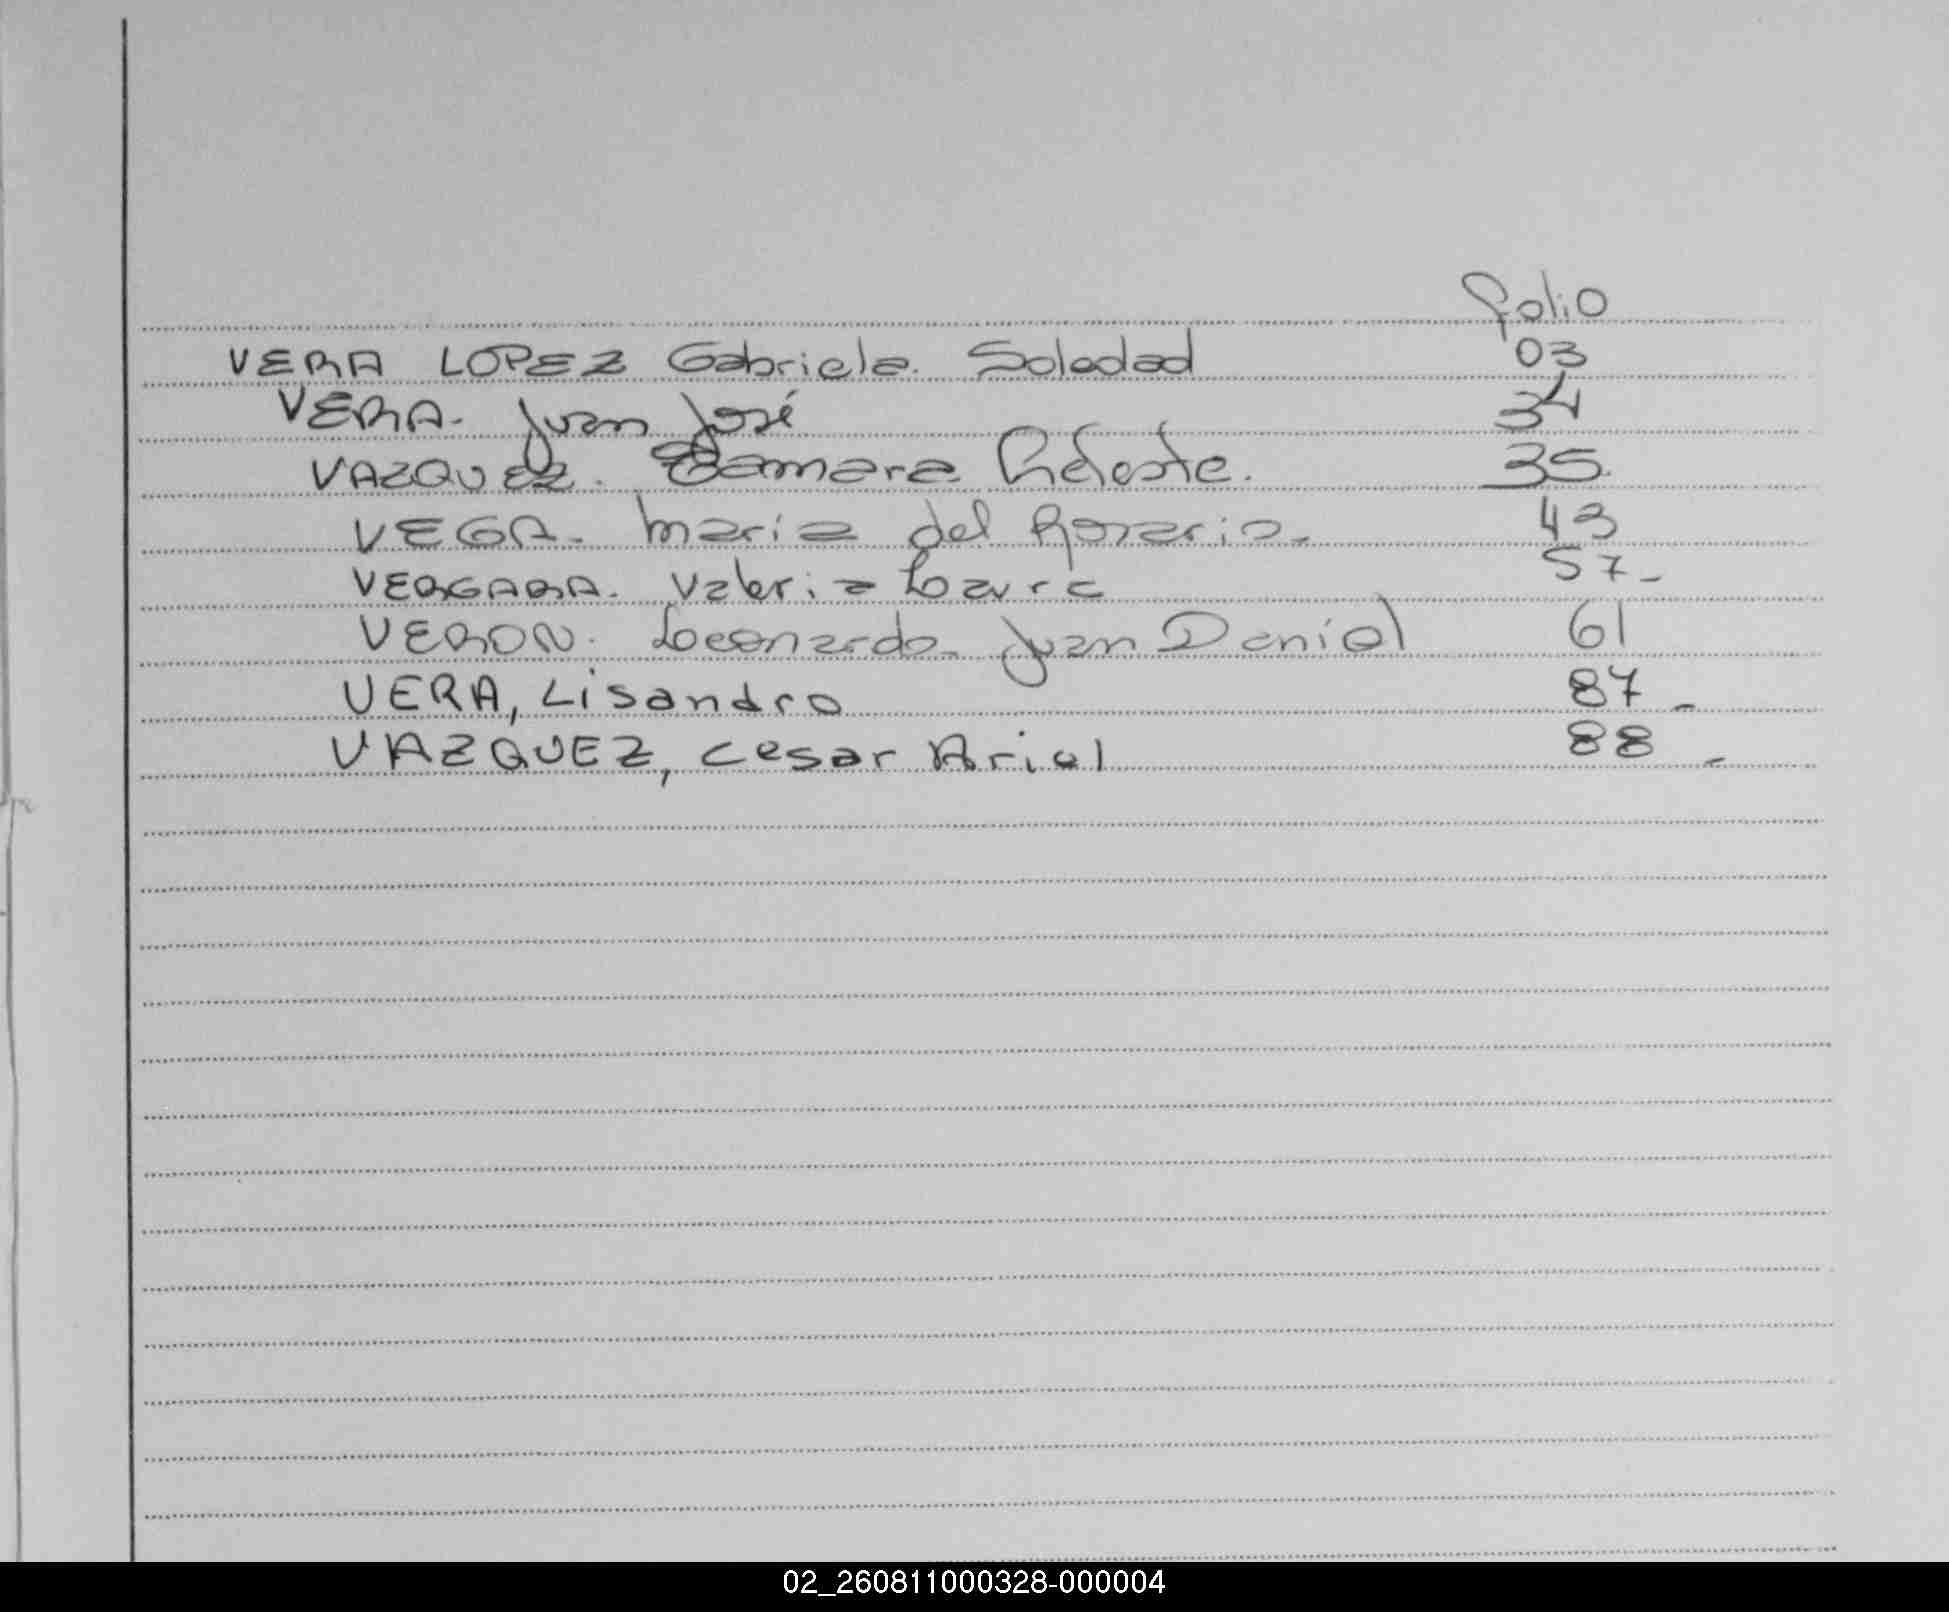 Folio
VERA LOPEZ Gabriela. Soledad 03
VERA. Juan José 34
VAZQUEZ. Tamara Celeste. 35.
VEGA. Maria del Rosario. 43
VERGARA. Valeria Laura 57-
VERON. Leonardo. Juan Daniel 61
VERA, Lisandro 87-
VAZQUEZ, Cesar Ariel 88-
02_260811000328-000004